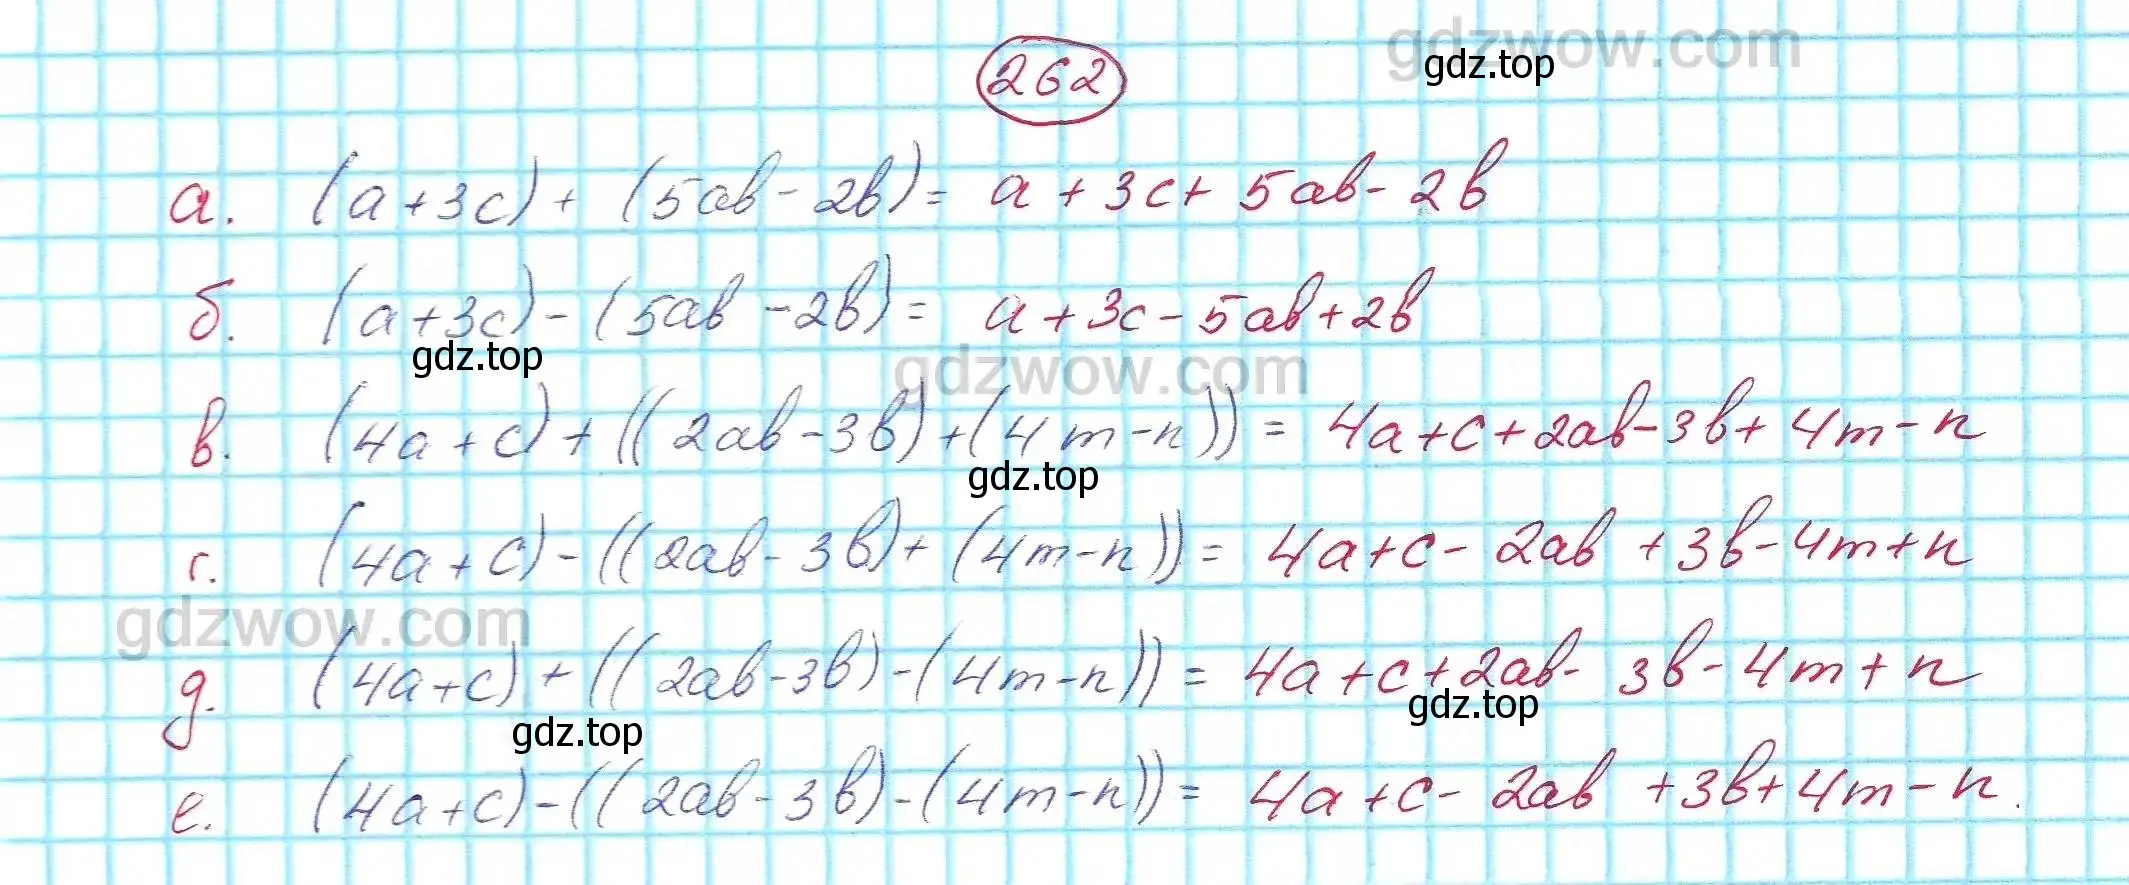 gdzwow.com
gdz.top
262
а. (a+3c) + (5ab - 2b) = a + 3c + 5ab - 2b
б. (a+3c) - (5ab - 2b) = a + 3c - 5ab + 2b
gdz.top
gdzwow.com
в. (4a + c) + ((2ab - 3b) + (4m - n)) = 4a + c + 2ab - 3b + 4m - n
gdz.top
г. (4a + c) - ((2ab - 3b) + (4m - n)) = 4a + c - 2ab + 3b - 4m + n
gdzwow.com
д. (4a + c) + ((2ab - 3b) - (4m - n)) = 4a + c + 2ab - 3b - 4m + n
gdz.top
gdz.top
е. (4a + c) - ((2ab - 3b) - (4m - n)) = 4a + c - 2ab + 3b + 4m - n.